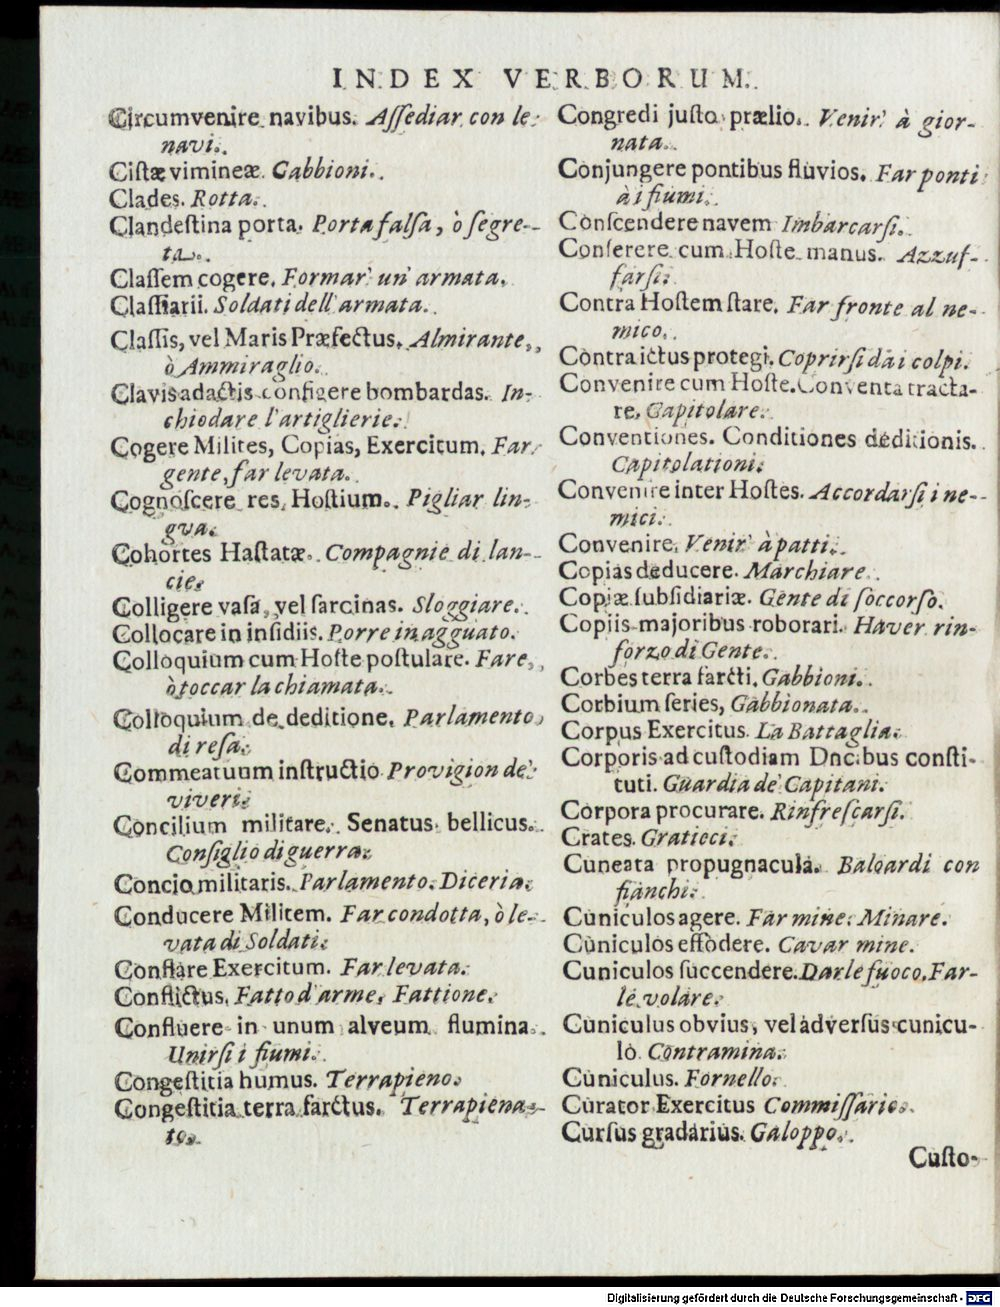 INDEX VERBORUM.
Circumvenire navibus. Aſſediar con le
navi.
Ciſtæ vimineæ. Gabbioni.
Clades. Rotta.
Clandeſtina porta. Porta falſa, ò ſegre-
ta.
Claſſem cogere. Formar' un' armata.
Claſſiarii. Soldati dell' armata.
Claſſis, vel Maris Præfectus. Almirante,
ò Ammiraglio.
Clavis adactis configere bombardas. In-
chiodare l'artiglierie.
Cogere Milites, Copias, Exercitum. Far
gente, far levata.
Cognoſcere res Hoſtium. Pigliar lin-
gua.
Cohortes Haſtatæ. Compagnie di lan-
cie.
Colligere vaſa, vel ſarcinas. Sloggiare.
Collocare in inſidiis. Porre in agguato.
Colloquium cum Hoſte poſtulare. Fare,
ò toccar la chiamata.
Colloquium de deditione. Parlamento
di reſa.
Commeatuum inſtructio Provigion de'
viveri.
Concilium militare. Senatus bellicus.
Conſiglio di guerra.
Concio militaris. Parlamento. Diceria.
Conducere Militem. Far condotta, ò le-
vata di Soldati.
Conflare Exercitum. Far levata.
Conflictus. Fatto d'arme, Fattione.
Confluere in unum alveum flumina.
Unirſi i fiumi.
Congeſtitia humus. Terrapieno.
Congeſtitia terra farctus. Terrapiena-
to.
Congredi juſto prælio. Venir' à gior-
nata.
Conjungere pontibus fluvios. Far ponti
à i fiumi.
Conſcendere navem Imbarcarſi.
Conſerere cum Hoſte manus. Azzuf-
farſi.
Contra Hoſtem ſtare. Far fronte al ne-
mico.
Contra ictus protegi. Coprirſi da i colpi.
Convenire cum Hoſte. Conventa tracta-
re. Capitolare.
Conventiones. Conditiones deditionis.
Capitolationi.
Convenire inter Hoſtes. Accordarſi i ne-
mici.
Convenire. Venir' à patti.
Copias deducere. Marchiare.
Copiæ ſubſidiariæ. Gente di ſoccorſo.
Copiis majoribus roborari. Haver rin-
forzo di Gente.
Corbes terra farcti. Gabbioni.
Corbium ſeries, Gabbionata.
Corpus Exercitus. La Battaglia.
Corporis ad cuſtodiam Ducibus conſti-
tuti. Guardia de' Capitani.
Corpora procurare. Rinfreſcarſi.
Crates. Graticci.
Cuneata propugnacula. Baloardi con
fianchi.
Cuniculos agere. Far mine. Minare.
Cuniculos effodere. Cavar mine.
Cuniculos ſuccendere. Darle fuoco. Far-
le volare.
Cuniculus obvius, vel adverſus cunicu-
lo. Contramina.
Cuniculus. Fornello.
Curator Exercitus Commiſſario.
Curſus gradarius. Galoppo.
Cuſto-
Digitalisierung gefördert durch die Deutsche Forschungsgemeinschaft - DFG